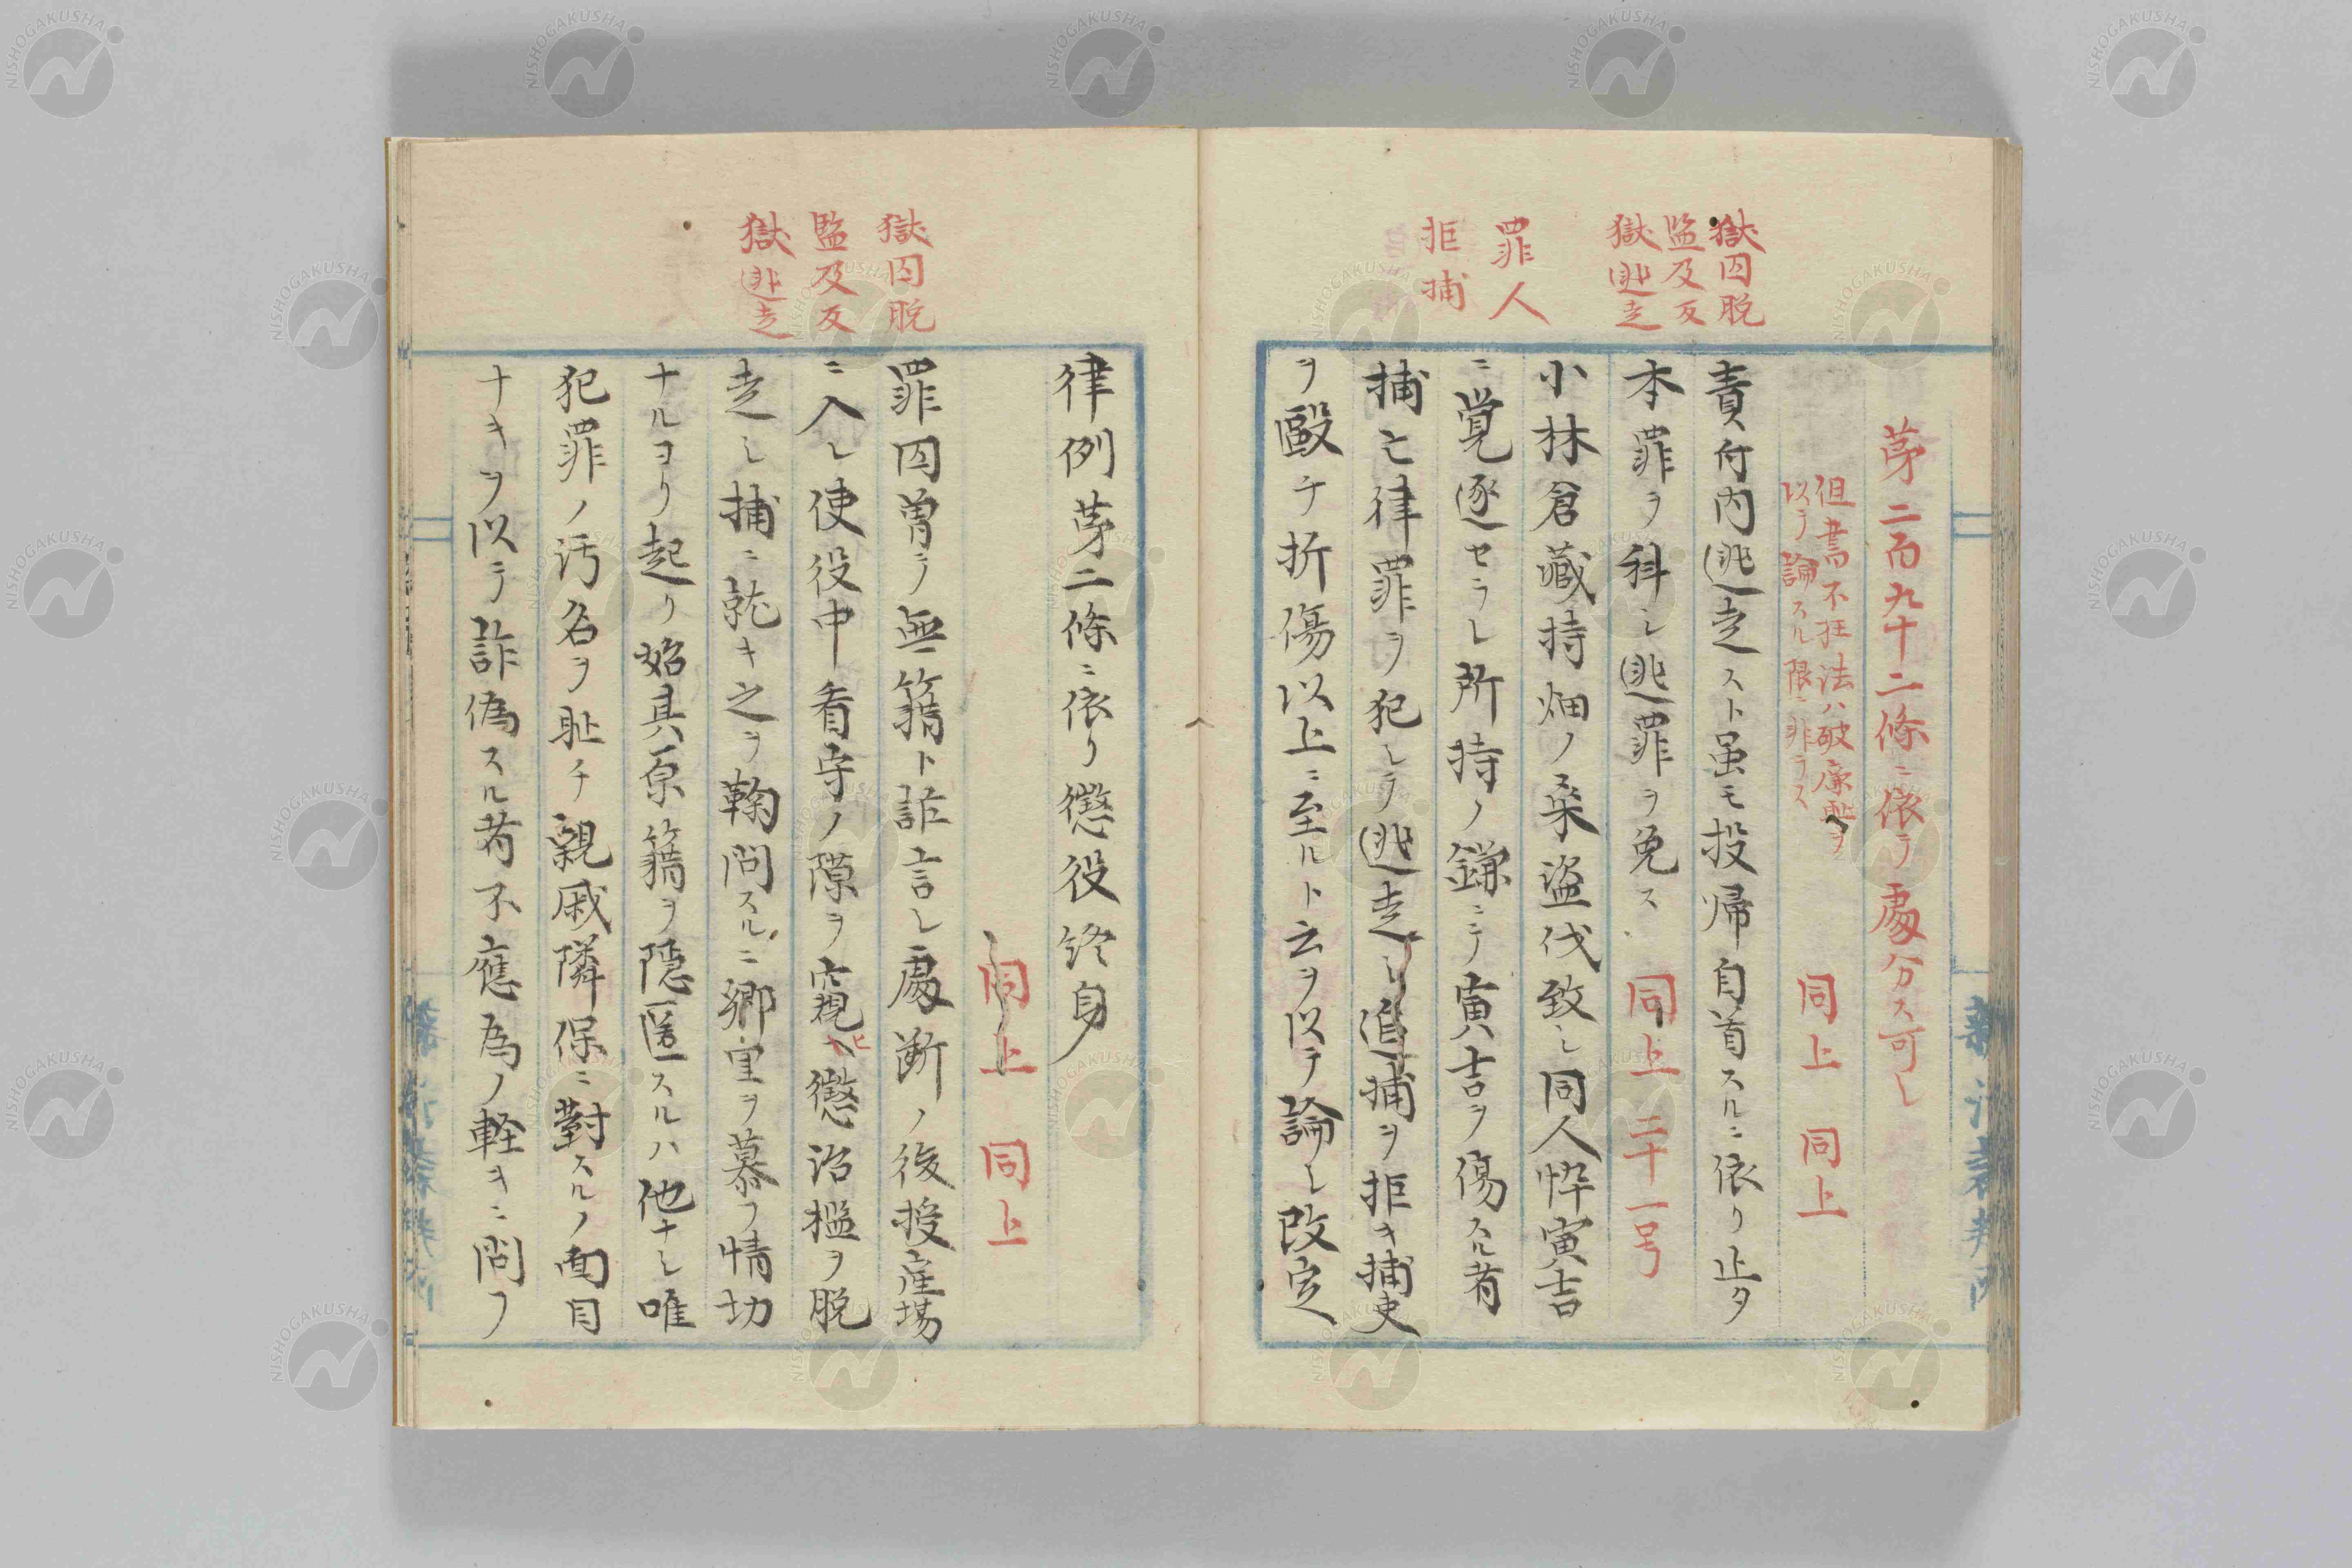 獄囚脱
監及反
獄逃走
罪人
拒捕
第二百九十二條ニ依テ處分ス可シ
但書不枉法ハ破廉恥ヲ
以テ論スル限ニ非ラス
同上 同上
責付内逃走スト虽モ投帰自首スルニ依リ止タ
本罪ヲ科シ逃罪ヲ免ス 同上 二十一号
小林倉藏持畑ノ桒盗伐致シ同人忰寅吉
ニ覚逐セラレ所持ノ鎌ニテ寅吉ヲ傷スル者
捕亡律罪ヲ犯シテ逃走シ追捕ヲ拒キ捕吏
ヲ毆チ折傷以上ニ至ルト云ヲ以テ論シ改定
獄囚脱
監及反
獄逃走
律例第二條ニ依リ懲役終身
同上 同上
罪囚曽テ無籍ト詐言シ處断ノ後授産場
ニ入レ使役中看守ノ隙ヲ窺ヒ懲治檻ヲ脱
走シ捕ニ就キ之ヲ鞠問スルニ郷里ヲ慕フ情切
ナルヨリ起リ始其原籍ヲ隠匿スルハ他ナシ唯
犯罪ノ汚名ヲ耻チ親戚隣保ニ對スルノ面目
ナキヲ以テ詐偽スル者不應為ノ軽キニ問フ
NISHOGAKUSHA